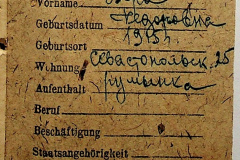 Vorname
Федоровна
Geburtsdatum 1915г
Geburtsort
Wohnung Севастопольск. 25
Aufenthalt румынка
Beruf
Beschäftigung
Staatsangehörigkeit